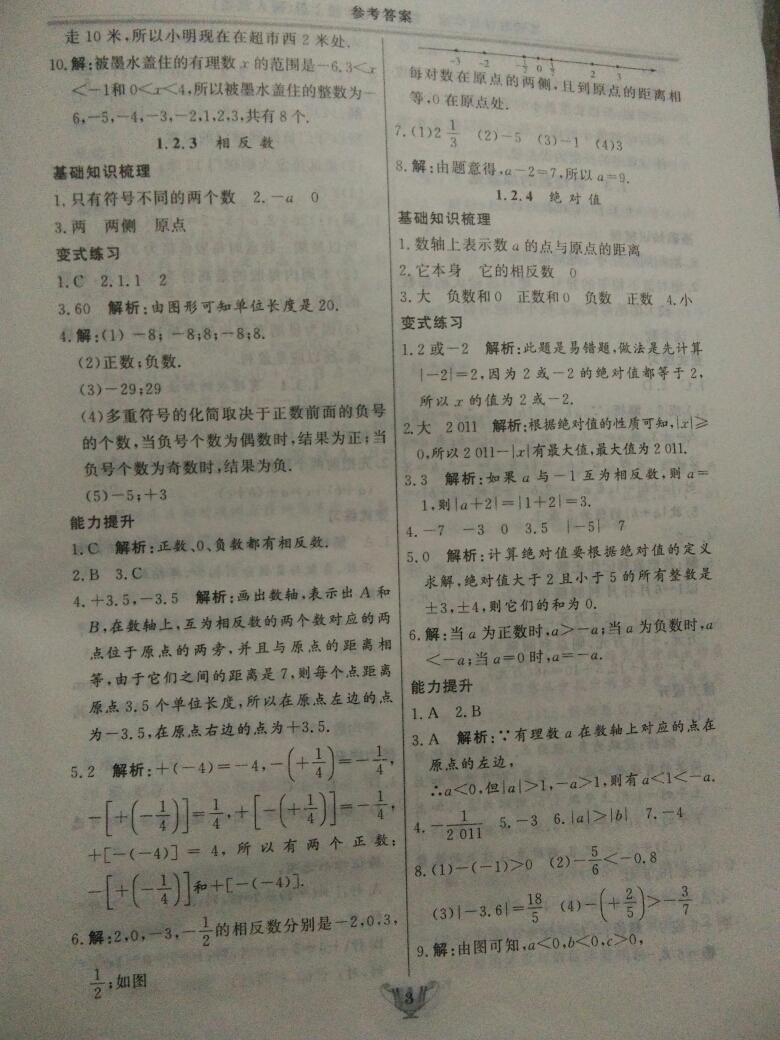 参考答案
走 10 米,所以小明现在在超市西 2 米处.
10.解:被墨水盖住的有理数 x 的范围是－6.3<x
<－1和 0<x<4,所以被墨水盖住的整数为－
6,－5,－4,－3,－2,1,2,3,共有 8 个.
1.2.3 相反数
基础知识梳理
1.只有符号不同的两个数 2.－a 0
3.两 两侧 原点
变式练习
1.C 2.1.1 2
3.60 解析:由图形可知单位长度是 20.
4.解:(1)－8; －8;8;－8;8.
(2)正数;负数.
(3)－29;29
(4)多重符号的化简取决于正数前面的负号
的个数,当负号个数为偶数时,结果为正;当
负号个数为奇数时,结果为负.
(5)－5;＋3
能力提升
1.C 解析:正数、0、负数都有相反数.
2.B 3.C
4.＋3.5,－3.5 解析:画出数轴,表示出 A 和
B,在数轴上,互为相反数的两个数对应的两
点位于原点的两旁,并且与原点的距离相
等,由于它们之间的距离是 7,则每个点距离
原点 3.5 个单位长度,所以在原点左边的点
为－3.5,在原点右边的点为＋3.5.
5.2 解析:＋(－4)＝－4,－(＋1/4)＝－1/4,
－[＋(－1/4)]＝1/4,＋[－(＋1/4)]＝－1/4,
＋[－(－4)] ＝ 4, 所以有两个正数:
－[＋(－1/4)]和＋[－(－4)].
6.解:2,0,－3,－1/2的相反数分别是－2,0,3,
1/2;如图
－3 －2 －1/2 0 1/2 2 3
每对数在原点的两侧,且到原点的距离相
等,0 在原点处.
7.(1)2 1/3 (2)－5 (3)－1 (4)3
8.解:由题意得,a－2＝7,所以 a＝9.
1.2.4 绝对值
基础知识梳理
1.数轴上表示数 a 的点与原点的距离
2.它本身 它的相反数 0
3.大 负数和0 正数和0 负数 正数 4.小
变式练习
1.2 或－2 解析:此题是易错题,做法是先计算
|－2|＝2,因为 2 或－2 的绝对值都等于 2,
所以 x 的值为 2 或－2.
2.大 2 011 解析:根据绝对值的性质可知,|x|≥
0,所以 2 011－|x|有最大值,最大值为 2 011.
3.3 解析:如果 a 与－1 互为相反数,则 a＝
1,则|a＋2|＝|1＋2|＝3.
4.－7 －3 0 3.5 |－5| 7
5.0 解析:计算绝对值要根据绝对值的定义
求解,绝对值大于 2 且小于 5 的所有整数是
±3,±4,则它们的和为 0.
6.解:当 a 为正数时,a>－a;当 a 为负数时,a
<－a;当 a＝0 时,a＝－a.
能力提升
1.A 2.B
3.A 解析:∵有理数 a 在数轴上对应的点在
原点的左边,
∴a<0,但|a|>1,－a>1,则有 a<1<－a.
4.－1/2 011 5.－3 6.|a|>|b| 7.－4
8.(1)－(－1)>0 (2)－5/6<－0.8
(3)|－3.6|＝18/5 (4)－(＋2/5)>－3/7
9.解:由图可知,a<0,b<0,c>0,
3